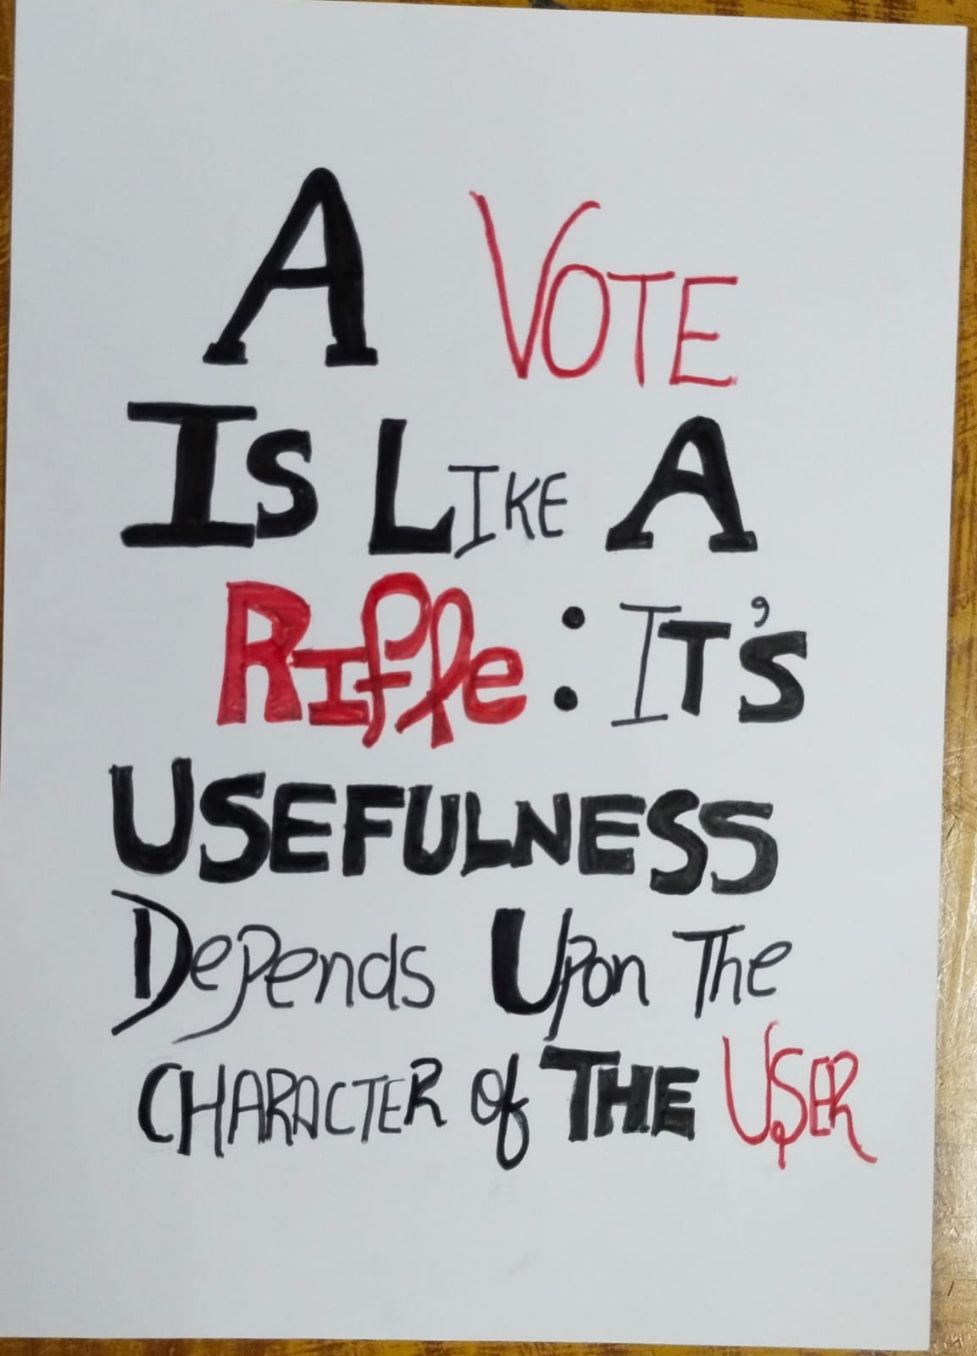 A VOTE
IS LIKE A
RIfle : IT'S
USEFULNESS
DePends UPon The
CHARACTER of THE USER